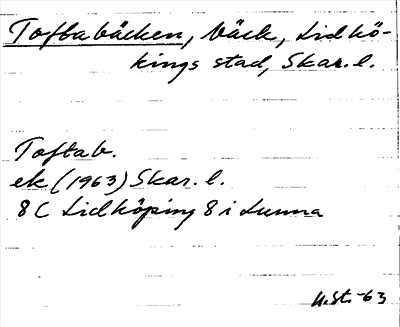 Toftabäcken, bäck, Lidkö-
kings stad, Skar. l.
Toftab.
ek (1963) Skar. l.
8 C Lidköping 8 i Lunna
U.St. -63